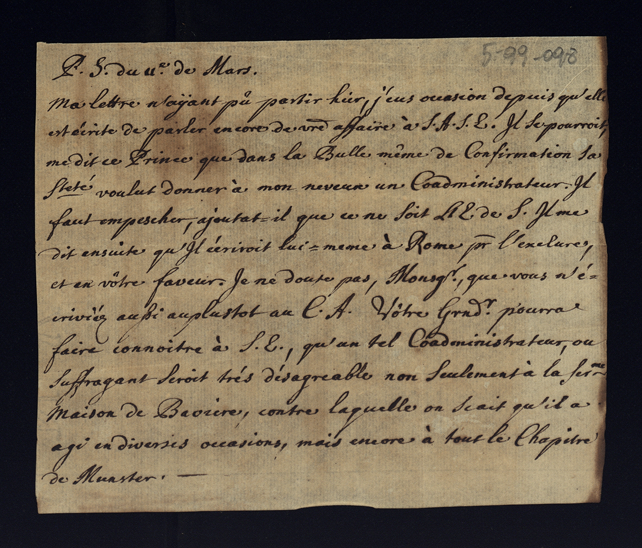 5-99-098
P. S. du 11e. de Mars.
Ma lettre n'aÿant pû partir hiér, j'eus occasion depuis qu'elle
est écrite de parler encore de vrê affaire à S. A. S. E. Il se pourroit,
me dit ce Prince que dans la Bulle même de Confirmation Sa
Steté voulut donner à mon neveux un Coadministrateur. Il
faut empescher, ajoutat=il que ce ne soit de S. Il me
dit ensuite qu'Il écriroit lui=meme à Rome pr l'exclure,
et en vôtre faveur. Je ne doute pas, Monsgr., que vous n'é-
criviéz aussi auplustot au C. A. Vôtre Grndr. pourra
faire connoitre à S. E., qu'un tel Coadministrateur, ou
Suffragant seroit trés désagreable non seulement à la serme
Maison de Baviere, contre laquelle on scait qu'il a
agi en diverses occasions, mais encore à tout le Chapitre
de Munster. —